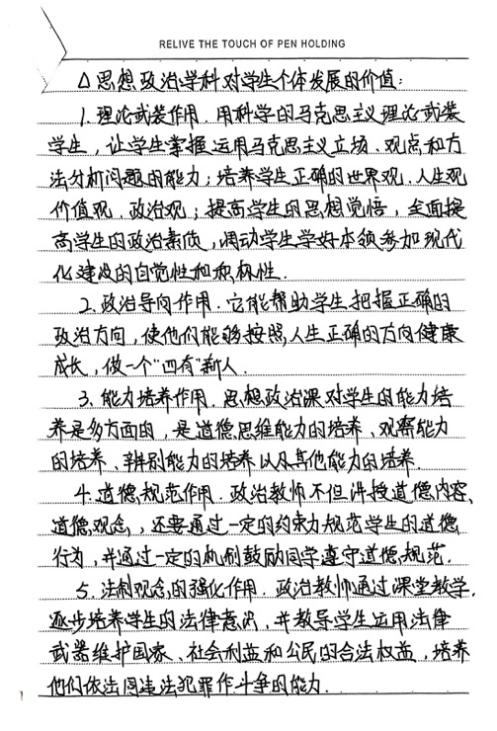 RELIVE THE TOUCH OF PEN HOLDING
△思想政治学科对学生个体发展的价值:
1.理论武装作用.用科学的马克思主义理论武装
学生,让学生掌握运用马克思主义立场、观点和方
法分析问题的能力;培养学生正确的世界观、人生观
价值观、政治观;提高学生的思想觉悟,全面提
高学生的政治素质,调动学生学好本领参加现代
化建设的自觉性和积极性.
2.政治导向作用.它能帮助学生把握正确的
政治方向,使他们能够按照人生正确的方向健康
成长,做一个"四有"新人.
3.能力培养作用.思想政治课对学生的能力培
养是多方面的,是道德思维能力的培养、观察能力
的培养、辨别能力的培养以及其他能力的培养.
4.道德规范作用.政治教师不但讲授道德内容、
道德观念,还要通过一定的约束力规范学生的道德
行为,并通过一定的机制鼓励同学遵守道德规范.
5.法制观念的强化作用.政治教师通过课堂教学,
逐步培养学生的法律意识,并教导学生运用法律
武器维护国家、社会利益和公民的合法权益,培养
他们依法同违法犯罪作斗争的能力.